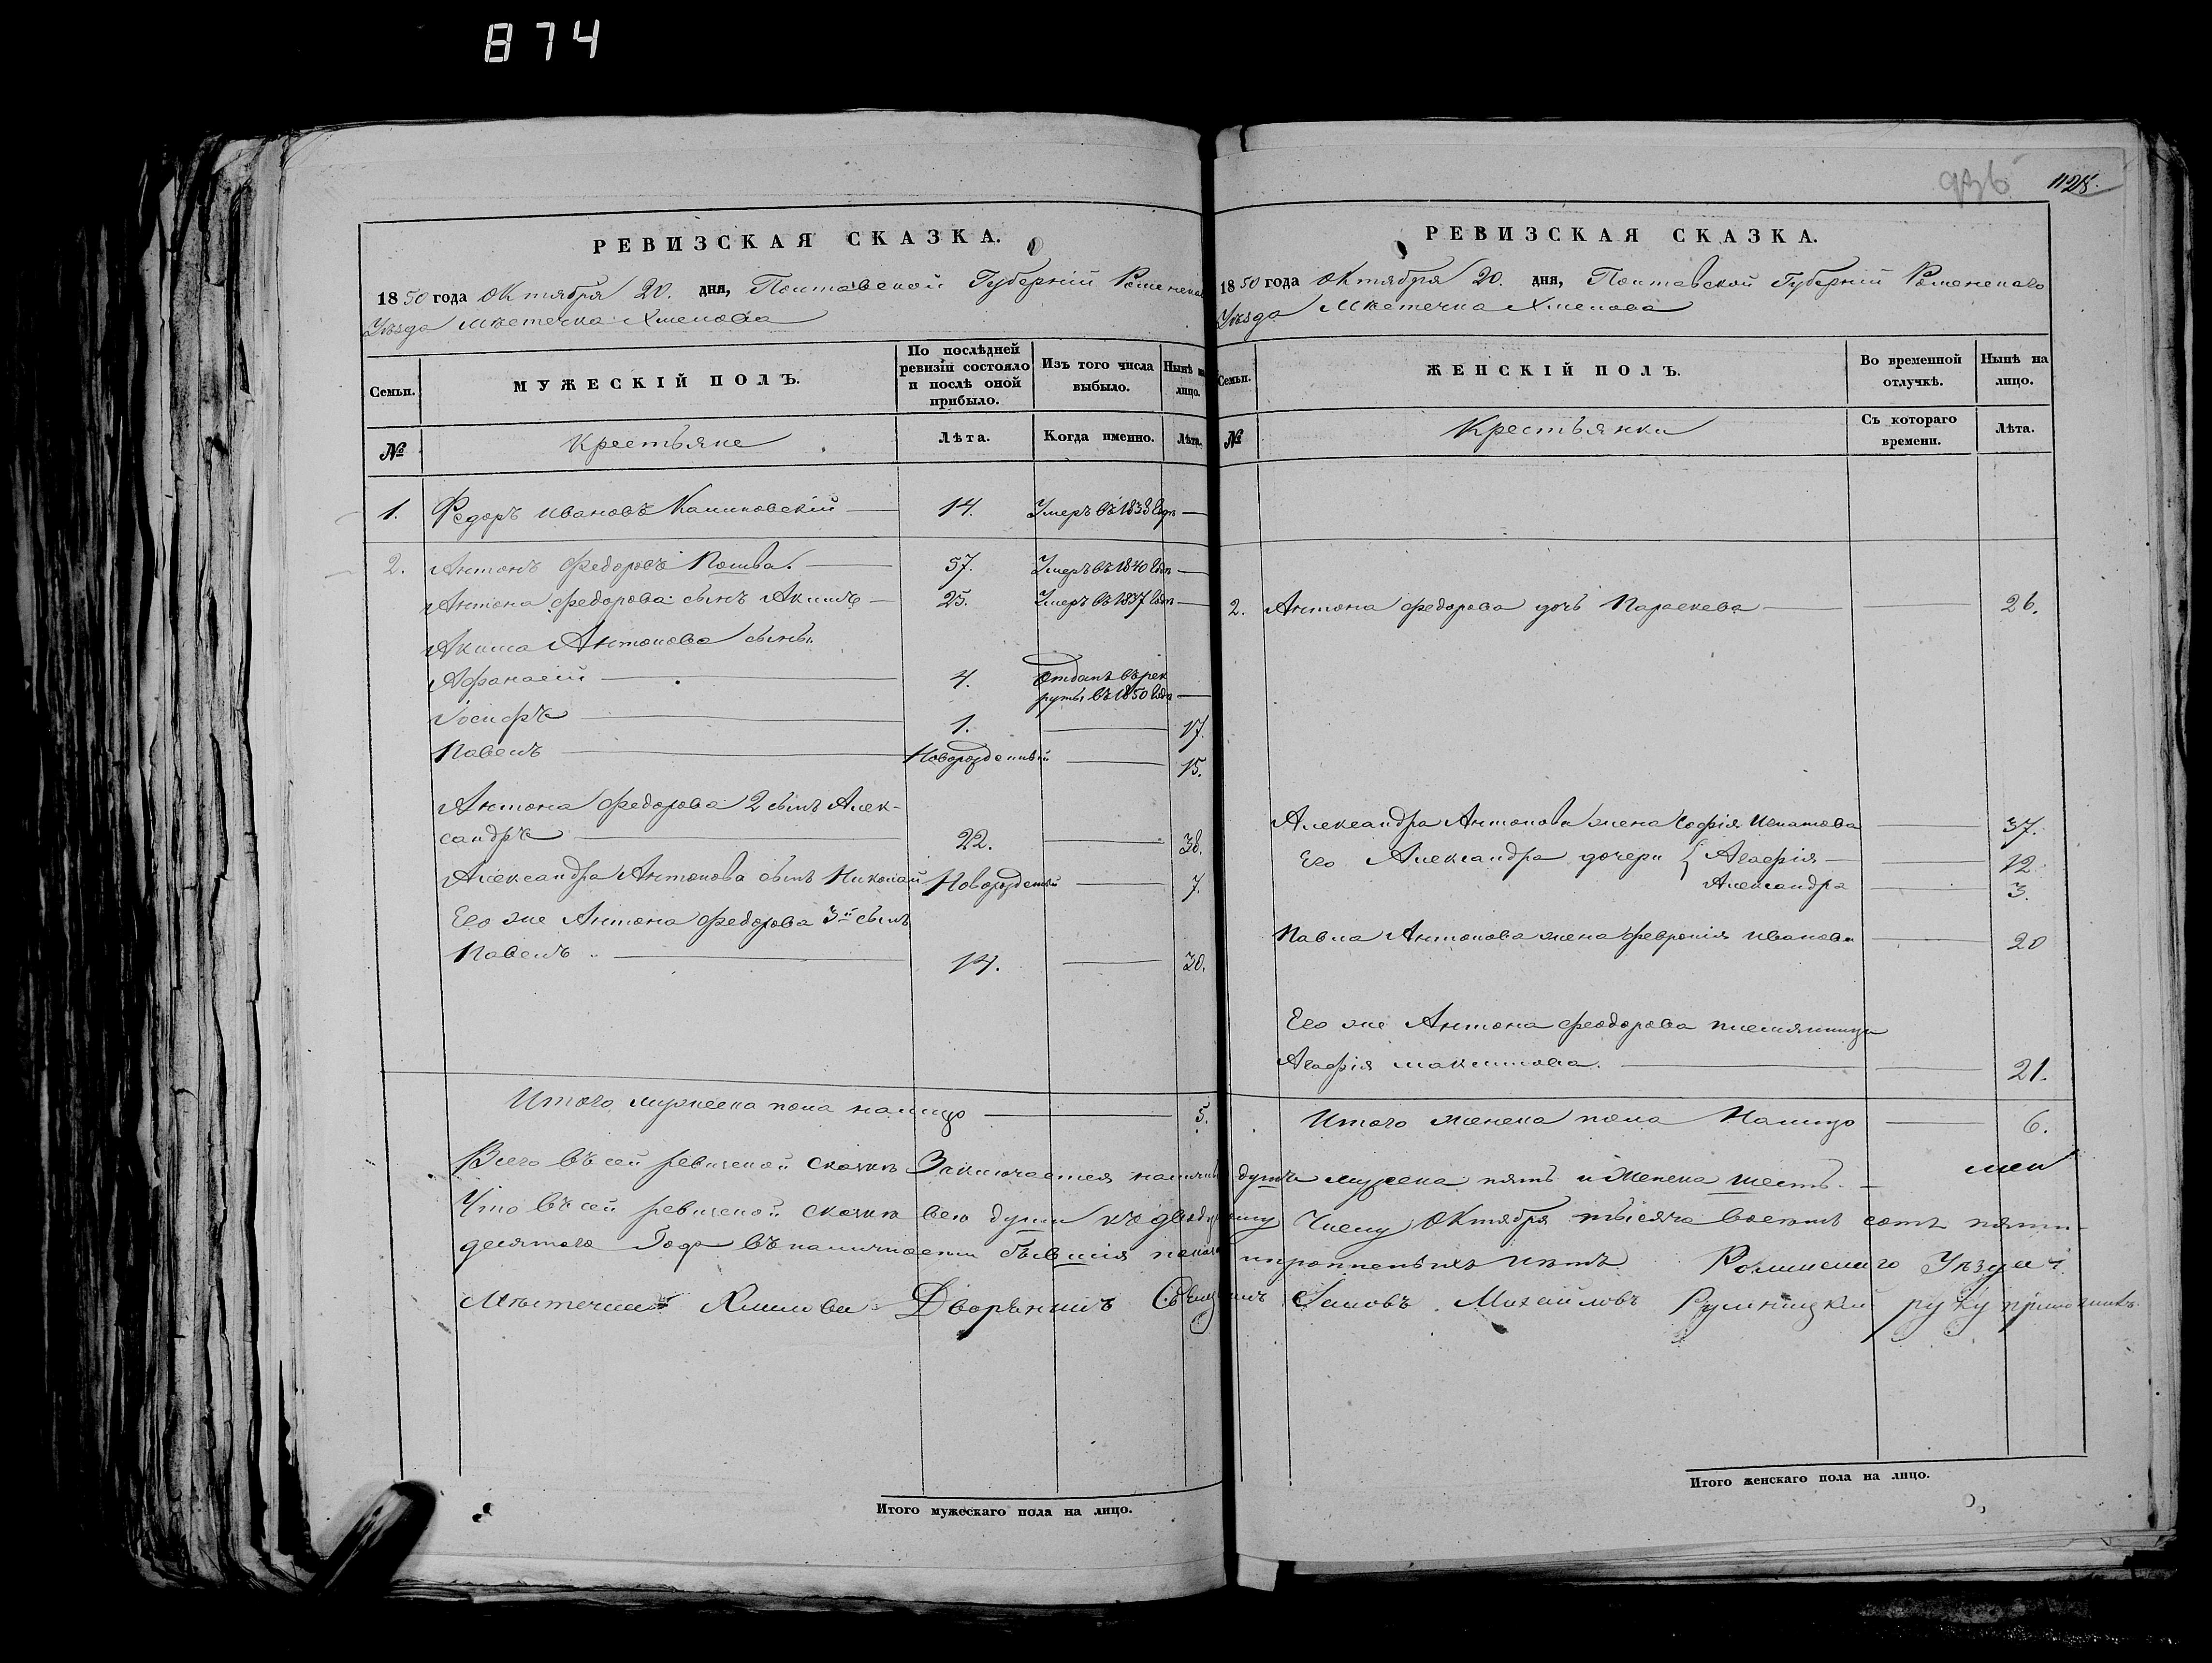 874
1125.
РЕВИЗСКАЯ СКАЗКА.
1850 года Октября 20. дня, Полтавской Губерніи Роменскаго
Уѣзда Мѣстечка Хмелова
Семьи.
МУЖЕСКІЙ ПОЛЪ.
По послѣдней ревизіи состояло и послѣ оной прибыло.
Изъ того числа выбыло.
Нынѣ на лицо.
№
Крестьяне
Лѣта.
Когда именно.
Лѣта.
1. Федоръ Ивановъ 14. Умеръ въ 1838 годѣ
2. Антонъ Федоровъ 57. Умеръ въ 1840 годѣ
Антона Федорова сынъ Акимъ 25. Умеръ въ 1837 годѣ
Акима Антонова сыны
Афанасій 4. Отданъ въ рек
руты въ 1850 годѣ
Іосифъ 1. 17.
Павелъ Новорожденный 15.
Антона Федорова 2 сынъ Алек-
сандръ 22. 38.
Александра Антонова сынъ Николай Новорожденный 7.
Его же Антона Федорова 3й сынъ
Павелъ 14. 30.
Итого мужеска пола налицо 5.
Итого мужескаго пола на лицо.
РЕВИЗСКАЯ СКАЗКА.
1850 года Октября 20. дня, Полтавской Губерніи Роменскаго
Уѣзда Мѣстечка Хмелова
Семьи.
ЖЕНСКІЙ ПОЛЪ.
Во временной отлучкѣ.
Нынѣ на лицо.
№
Крестьянки
Съ котораго времени.
Лѣта.
2. Антона Федорова дочь Параскева 26.
Александра Антонова жена Софія Игнатова 37.
Его Александра дочери { Агафія 12.
Александра 3.
Павла Антонова жена Февронія Иванова 20
Его же Антона Феодорова племянница
Агафія Максимова. 21.
Итого женска пола Налицо 6.
Всего въ сей ревизской сказкѣ Заключается наличныхъ душъ мужеска пять и Женска шесть.
Что въ сей ревизской сказкѣ всѣ души къ двадцатому Числу Октября тысяча восемь сотъ пяти-
десятого Года въ наличности бывшія показаны и пропненыхъ нѣтъ Роменскаго Уѣзда
Мѣстечка Хмелова Дворянинъ Михайловъ руку приложилъ.
Итого женскаго пола на лицо.